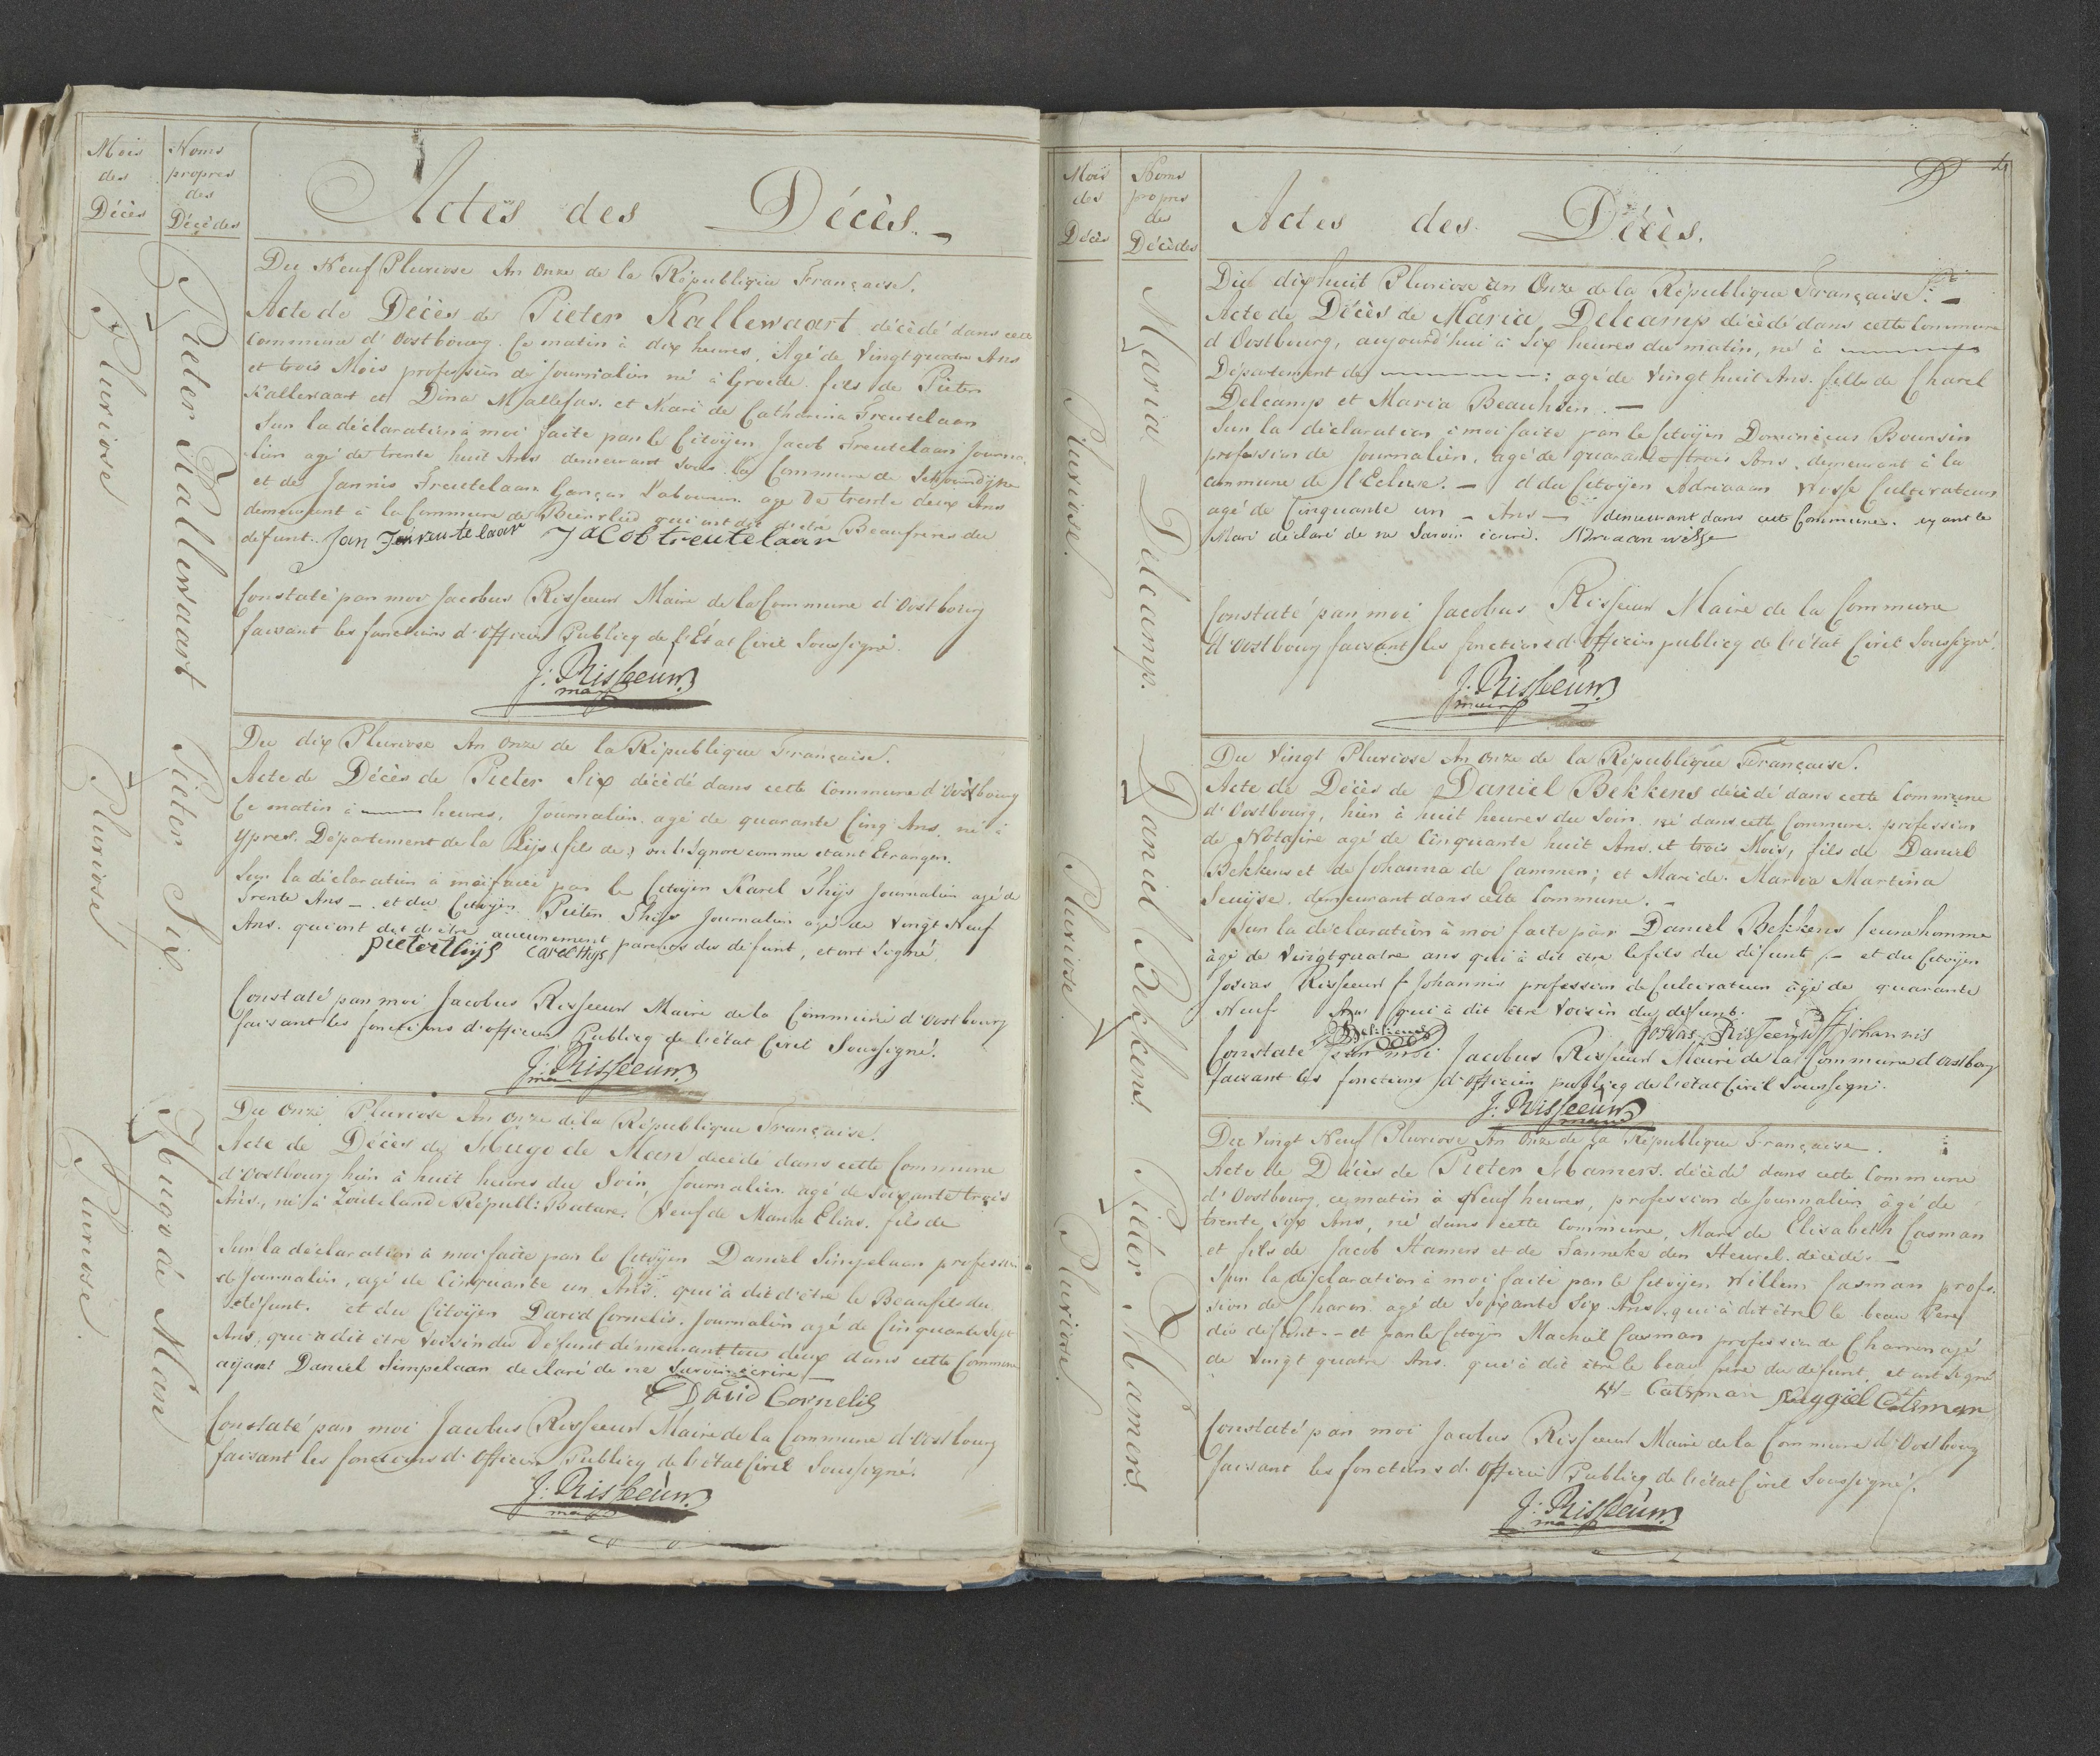 Mois
des
Décès
Noms
propres
des
Décédés
Actes des Décès.
Pluviose
Pieter Kallewaart
Du Neuf Pluviose An Onze de la République Française.
Acte de Décès de Pieter Kallewaart décèdé dans cette
Commune d'Oostbourg. Ce matin à dix heures, Agé de Vingt quatre Ans
et trois Mois profession de Journalier né à Groede. fils de Pieter
Kallewaart et Dina Mallefas. et Mari de Catharina Treutelaar
Sur la déclaration à moi faite par le Citoÿen Jacob Treutelaar Journa-
lier agé de trente huit Ans demeurant sous la Commune de Schoondijke
et de Jannis Treutelaar Garçon Laboureur agé de trente deux Ans
demeurant à la Commune de Biervlied qui ont dit d'etre Beaufreres du
défunt. Jan treutelaar Jacob treutelaar
Constaté par moi Jacobus Risseeuw Maire de la Commune d'Oostbourg
faisant les fonctions d'Officier Publicq de l'État Civil Soussigné.
J: Risseeuw
maire
Pluviose
Pieter Six
Du dix Pluviose An Onze de la République Française.
Acte de Décès de Pieter Six décèdé dans cette Commune d'Oostbourg
Ce matin à heures, Journalier agé de quarante Cinq Ans, né à
Ypres. Département de la Lijs (fils de) on l'Ignore comme etant Etranger.
Sur la déclaration à moi faite par le Citoÿen Karel Thijs Journalier agé de
Trente Ans — et du Citoÿen Pieter Thijs Journalier agé de Vingt Neuf
Ans. qui ont dit d'etre aucunement parents du défunt, et ont Signé.
pieter thijs Carel thijs
Constaté par moi Jacobus Risseeuw Maire de la Commune d'Oostbourg
faisant les fonctions d'officier Publicq de l'état Civil Soussigné.
J: Risseeuw
maire
Pluviose.
Hugo de Man
Du Onze Pluviose An Onze de la République Française.
Acte de Décès de Hugo de Man decèdé dans cette Commune
d'Oostbourg hier à huit heures du Soir, Journalier agé de Soixante trois
Ans, né à Zoutelande Républ: Batave. Veuf de Maria Elias. fils de
Sur la déclaration à moi faite par le Citoÿen Daniel Simpelaar profession
de Journalier, agé de Cinquante un Ans. qui à dit d'etre le Beaufils du
défunt. et du Citoÿen David Cornelis. Journalier agé de Cinquante Sept
Ans, qui a dit etre Voisin du Défunt demeurant tous deux dans cette Commune
aÿant Daniel Simpelaar declaré de ne Savoir écrire.
David Cornelis
Constaté par moi Jacobus Risseeuw Maire de la Commune d'Oostbourg
faisant les fonctions d'Officier Publicq de l'état Civil Soussigné.
J: Risseeuw
maire
Mois
des
Décès
Noms
propres
des
Décèdes
Actes des Décès.
Pluviose.
Maria Delcamp.
Du dixhuit Pluviose An Onze de la République Française.
Acte de Décès de Maria Delcamp décèdé dans cette Commune
d'Oostbourg, aujourd'hui à Six heures du matin, né à
Département de : agé de Vingt huit Ans. fille de Charel
Delcamp et Maria Beauhsin. —
Sur la déclaration à moi faite par le Citoÿen Dominicus Boursin
profession de Journalier, agé de quarante trois Ans. demeurant à la
commune de l'Ecluse. — & du Citoÿen Adriaan Wesse Cultivateur
agé de Cinquante un — Ans — demeurant dans cette Commune. ayant le
Mari déclaré de ne Savoir ecrire. Adriaan wesse
Constaté par moi Jacobus Risseeuw Maire de la Commune
d'Oostbourg faisant les fonctions d'Officier publicq de l'état Civil Soussigné.
J: Risseeuw
maire
Pluviose
Daniel Bekkens
Du Vingt Pluviose An Onze de la République Française.
Acte de Décès de Daniel Bekkens décèdé dans cette Commune
d'Oostbourg, hier à huit heures du Soir. né dans cette Commune. profession
de Notaire agé de Cinquante huit Ans. et trois Mois, fils de Daniel
Bekkens et de Johanna de Cammer; et Mari de Maria Martina
demeurant dans cette Commune. —
Sur la déclaration à moi faite par Daniel Bekkens Jeune homme
àgé de Vingtquatre ans qui à dit etre le fils du défunt. — et du Citoÿen
Josias Risseeuw f. Johannis profession de Cultivateur àgé de quarante
Neuf Ans qui à dit être Voisin du défunt.
D Bekkens Josias Risseeuw f Johannis
Constaté par moi Jacobus Risseeuw Maire de la Commune d'Oostbourg
faisant les fonctions d'officier publicq de l'état Civil Soussigné.
J: Risseeuw
maire
Pluviose.
Pieter Hamers.
Du Vingt Neuf Pluviose An Onze de la République Française.
Acte de Décès de Pieter Hamers. décèdé dans cette Commune
d'Oostbourg, ce matin à Neuf heures, profession de Journalier âgé de
trente Six Ans, né dans cette Commune, Mari de Elisabeth Casman
et fils de Jacob Hamers et de Janneke den Heurel. décèdé. —
Sur la déclaration à moi faite par le Citoÿen Willem Casman profes-
sion de Charon agé de Soixante Six Ans, qui à dit etre le beau Pere
du défunt. — et par le Citoÿen Machiel Casman profession de Charron agé
de Vingt quatre Ans. qui à dit etre le beau frere du défunt, et ont Signé
W Catsman Maggiel Catsman
Constaté par moi Jacobus Risseeuw Maire de la Commune d'Oostbourg
faisant les fonctions d'Officier Publicq de l'état Civil Soussigné.
J: Risseeuw
maire